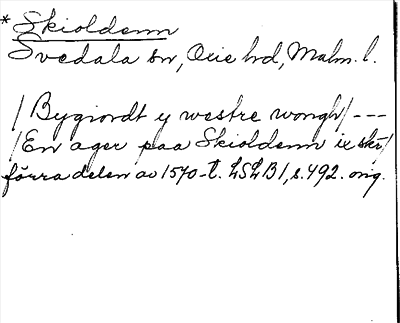 * Skioldenn
Svedala sn, Oxie hd, Malm. l.
/Bygiordt y westre wongh/ ---
/En ager paa Skioldenn ix skr/
förra delen av 1570-t. LSLB1, s. 492. orig.